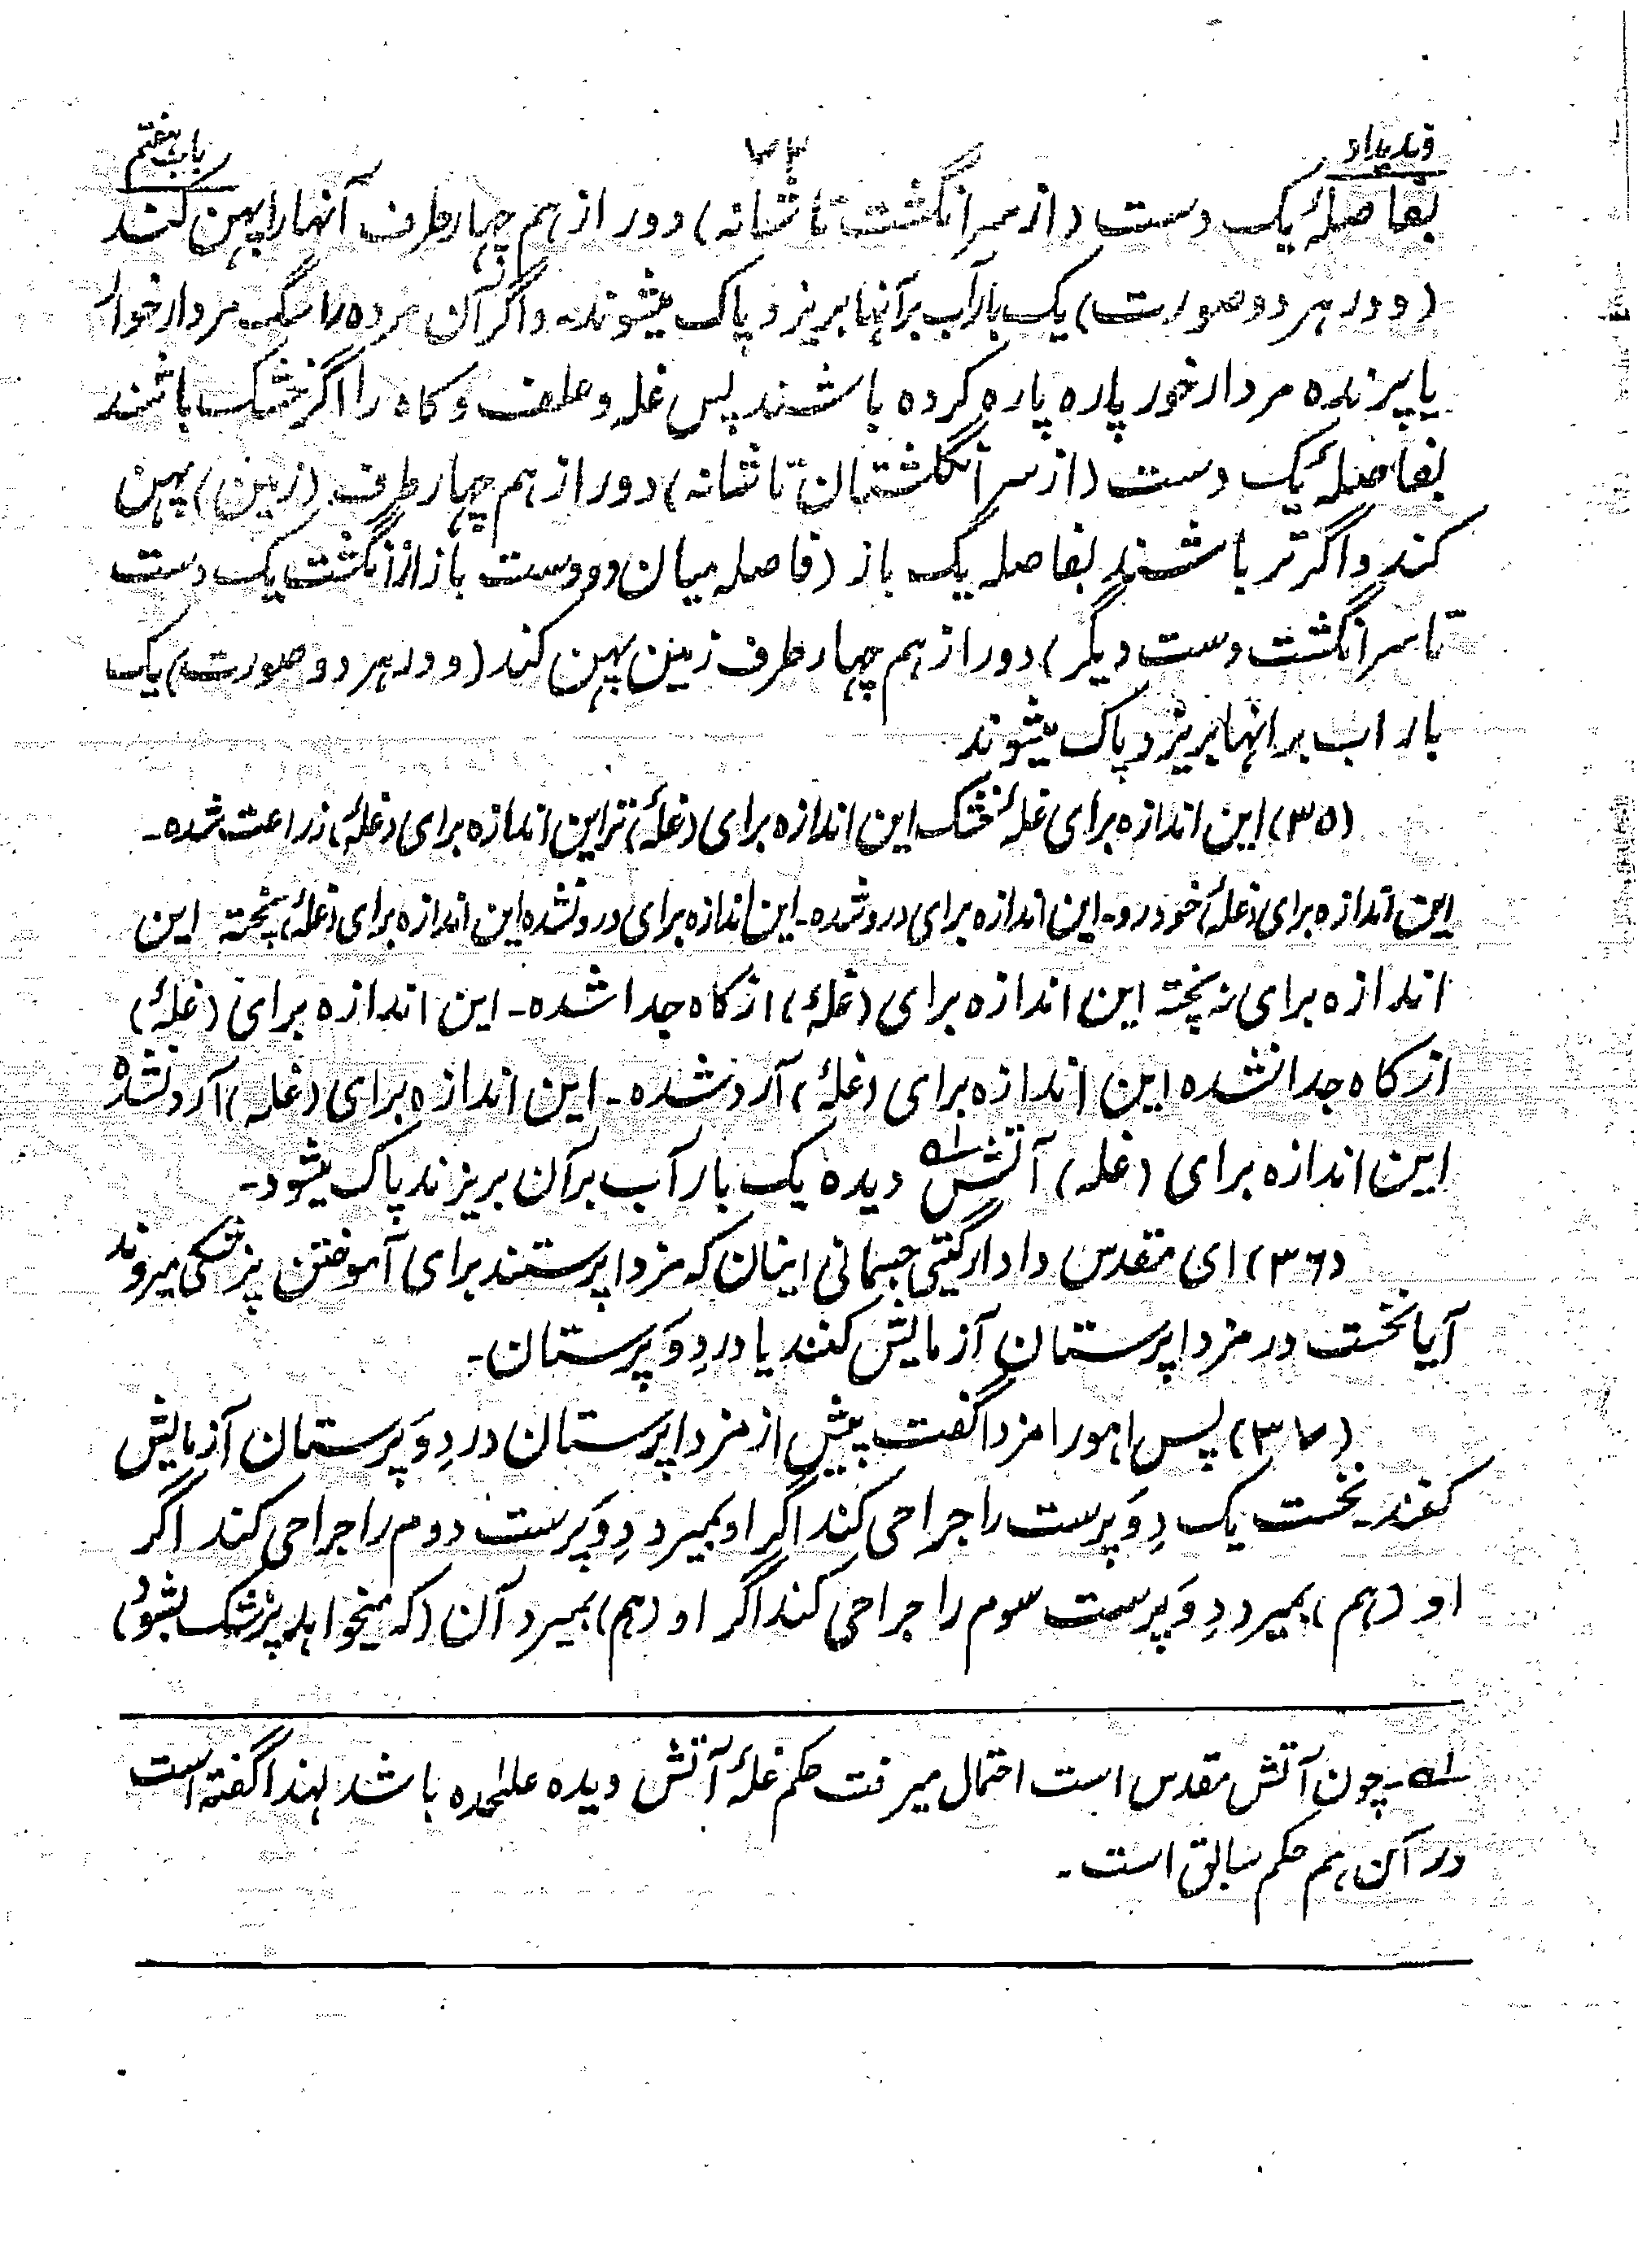 وندیداد ۷۳ باب هفتم
بفاصلهٔ یک دست (از سر انگشت تا شانه) دور از هم چهار طرف آنها را پهن کنند
(و در هر دو صورت) یک بار آب بر آنها بریزد پاک میشوند۔ و اگر آن مرده را سگ مردار خوار
یا پرنده مردار خور پاره پاره کرده باشند پس غله و علف و کاه را اگر خشک باشند
بفاصلهٔ یک دست (از سر انگشتان تا شانه) دور از هم چهار طرف (زمین) پهن
کند و اگر تر باشند بفاصله یک باز (فاصله میان دو دست باز از انگشت یک دست
تا سر انگشت دست دیگر) دور از هم چهار طرف زمین پهن کند (و در هر دو صورت) یک
بار اب بر انها بریزد پاک میشوند
(۳۵) این اندازه برای غلهٔ خشک این اندازه برای (غلهٔ) تر این اندازه برای (غلهٔ) زراعت شده۔
این اندازه برای (غلهٔ) خود رو۔ این اندازه برای درو شده۔ این اندازه برای درو نشده این اندازه برای (غلهٔ) پخته این
اندازه برای نه پخته این اندازه برای (غلهٔ) از کاه جدا شده۔ این اندازه برای (غلهٔ)
از کاه جدا نشده این اندازه برای (غلهٔ) آرد شده۔ این اندازه برای (غله) آرد نشده
این اندازه برای (غله) آتش ؂۱ دیده یک بار آب بر آن بریزند پاک میشود۔
(۳۶) ای مقدس دادار گیتی جسمانی اینان که مزدا پرستند برای آموختن پزشکی میروند
آیا نخست در مزدا پرستان آزمایش کنند یا در دِوَ پرستان۔
(۳۷) پس اهورا مزدا گفت پیش از مزدا پرستان در دِوَ پرستان آزمایش
کنند۔ نخست یک دِوَ پرست را جراحی کند اگر او بمیرد دِوَ پرست دوم را جراحی کند اگر
او (هم) بمیرد دِوَ پرست سوم را جراحی کند اگر او (هم) بمیرد آن (که میخواهد پزشک بشود)
؂۱۔ چون آتش مقدس است احتمال میرفت حکم غلهٔ آتش دیده علیٰحده باشد لهذا گفته است
در آن هم حکم سابق است۔